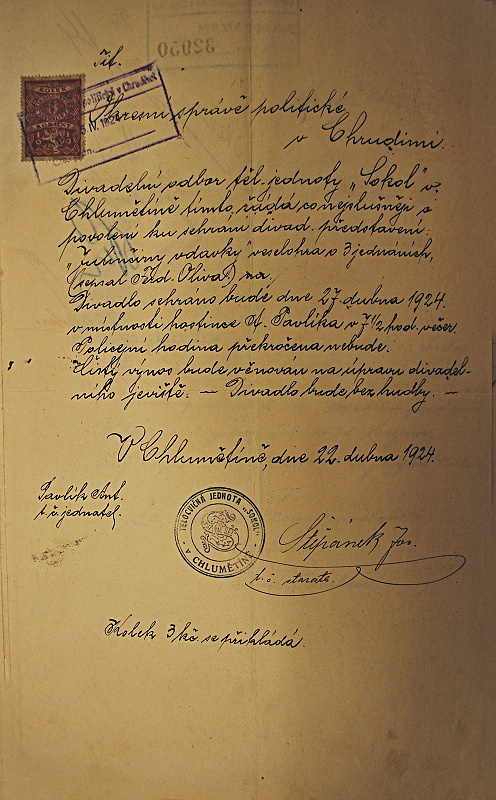 32050
Tit.
KOLEK
politické v Chrudimi
IV. 1924
Okresní správě politické
v Chrudimi.
Divadelní odbor těl. jednoty „Sokol" v
Chlumětíně tímto žádá co nejslušněji o
povolení ku sehrání divad. představení:
„Julinčiny vdavky" veselohra o 3 jednáních,
(sepsal Ferd. Oliva)
Divadlo sehráno bude dne 27. dubna 1924.
v místnosti hostince A. Pavlíka v 7½ hod. večer.
Policejní hodina překročena nebude.
Čistý výnos bude věnován na úpravu divadel-
ního jeviště. — Divadlo bude bez hudby. —
V Chlumětíně, dne 22. dubna 1924.
Pavlík Ant.
t. č. jednatel.
TĚLOCVIČNÁ JEDNOTA „SOKOL"
V CHLUMĚTÍNĚ
Štěpánek Jos.
t. č. starosta.
Kolek 3 kč. se přikládá.